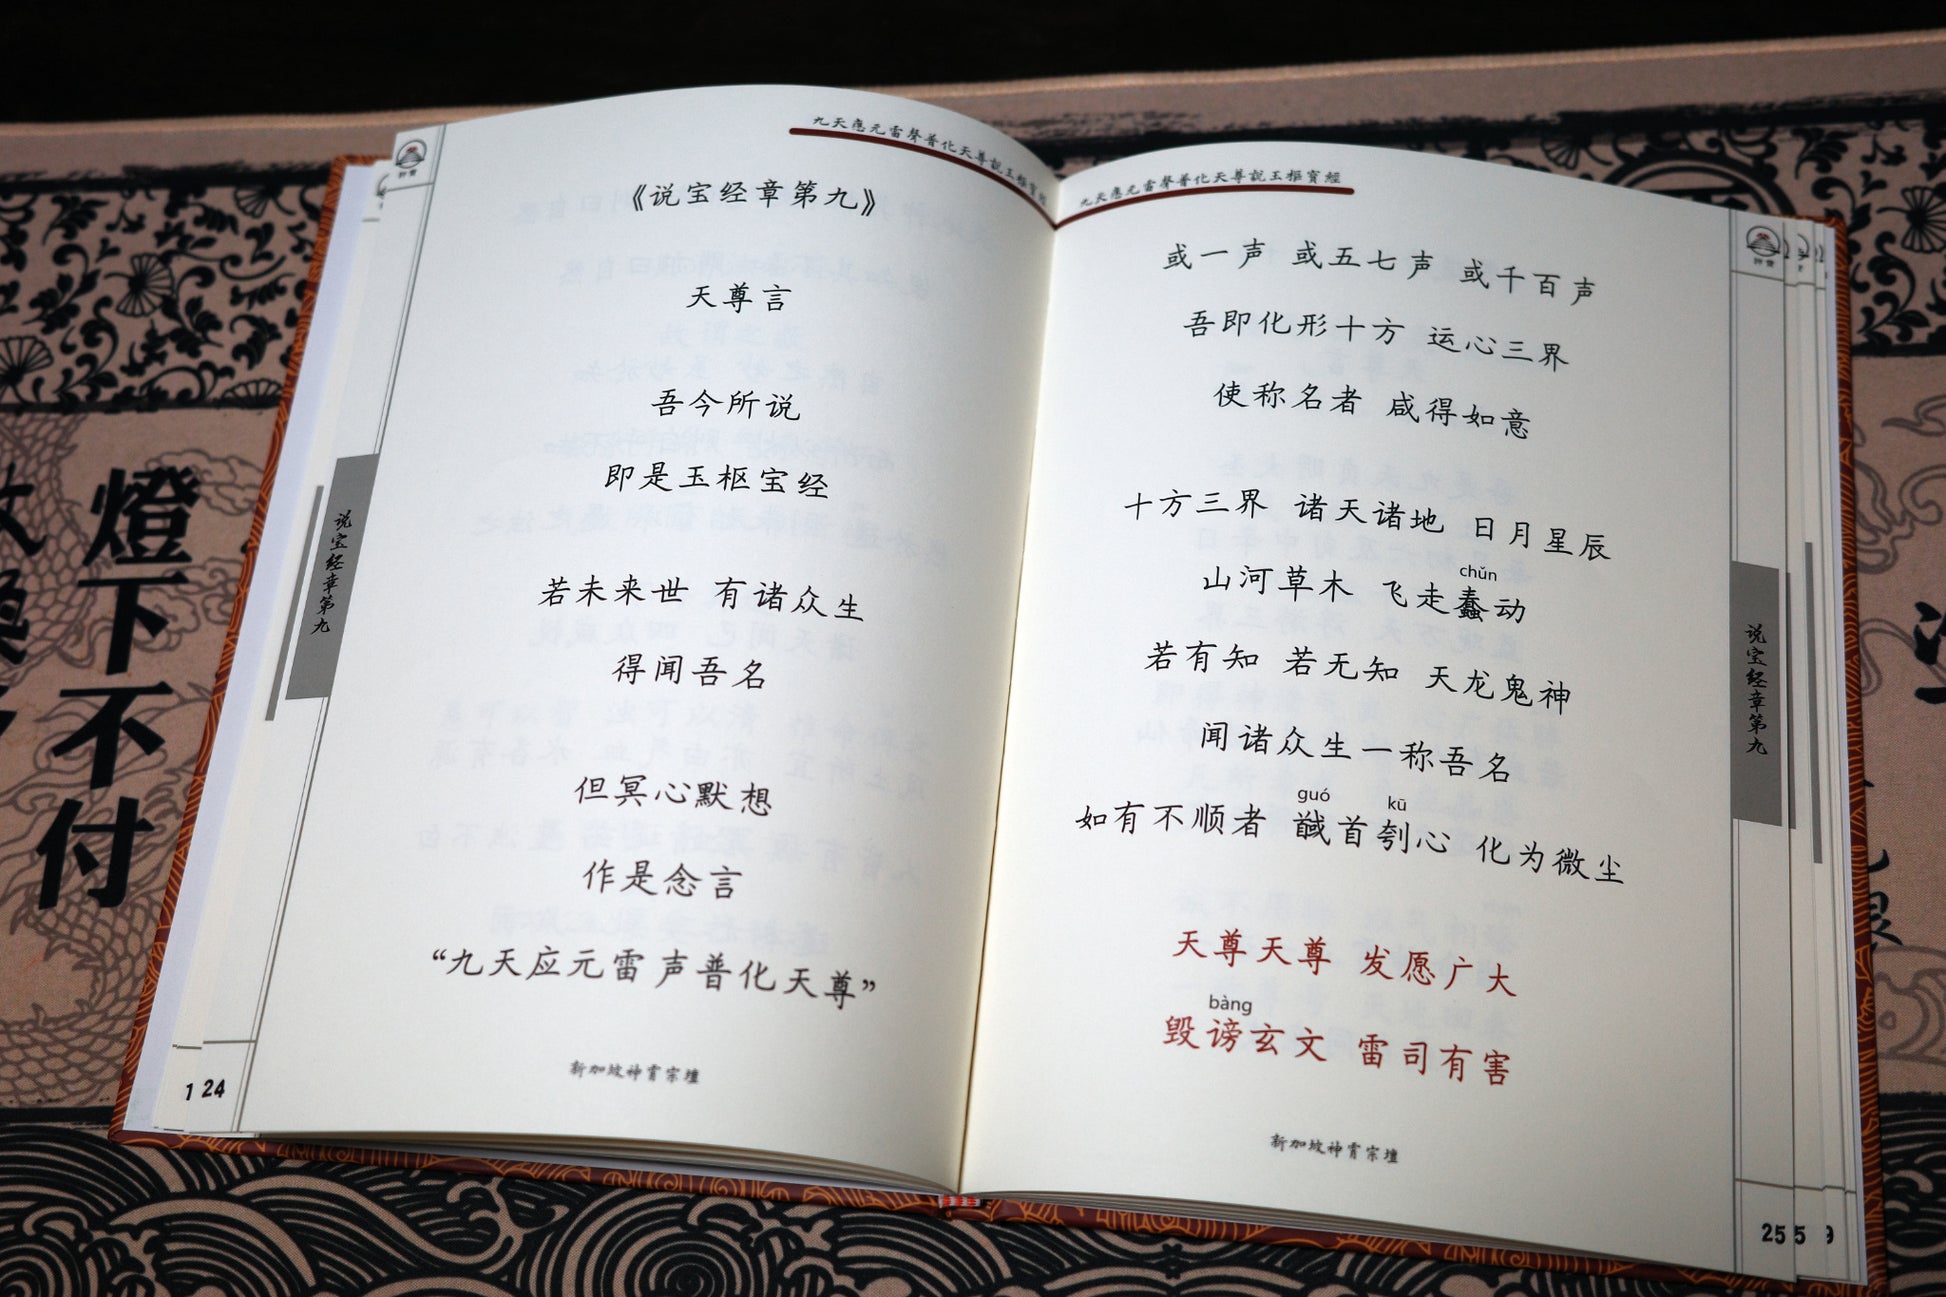 九天應元雷聲普化天尊說玉樞寶經
《说宝经章第九》
天尊言
吾今所说
即是玉枢宝经
若未来世 有诸众生
得闻吾名
但冥心默想
作是念言
“九天应元雷声普化天尊”
新加坡神霄宗壇
说宝经章第九
24
九天應元雷聲普化天尊說玉樞寶經
或一声 或五七声 或千百声
吾即化形十方 运心三界
使称名者 咸得如意
十方三界 诸天诸地 日月星辰
chǔn
山河草木 飞走蠢动
若有知 若无知 天龙鬼神
闻诸众生一称吾名
guó kū
如有不顺者 馘首刳心 化为微尘
天尊天尊 发愿广大
bàng
毁谤玄文 雷司有害
新加坡神霄宗壇
说宝经章第九
25
燈下不付